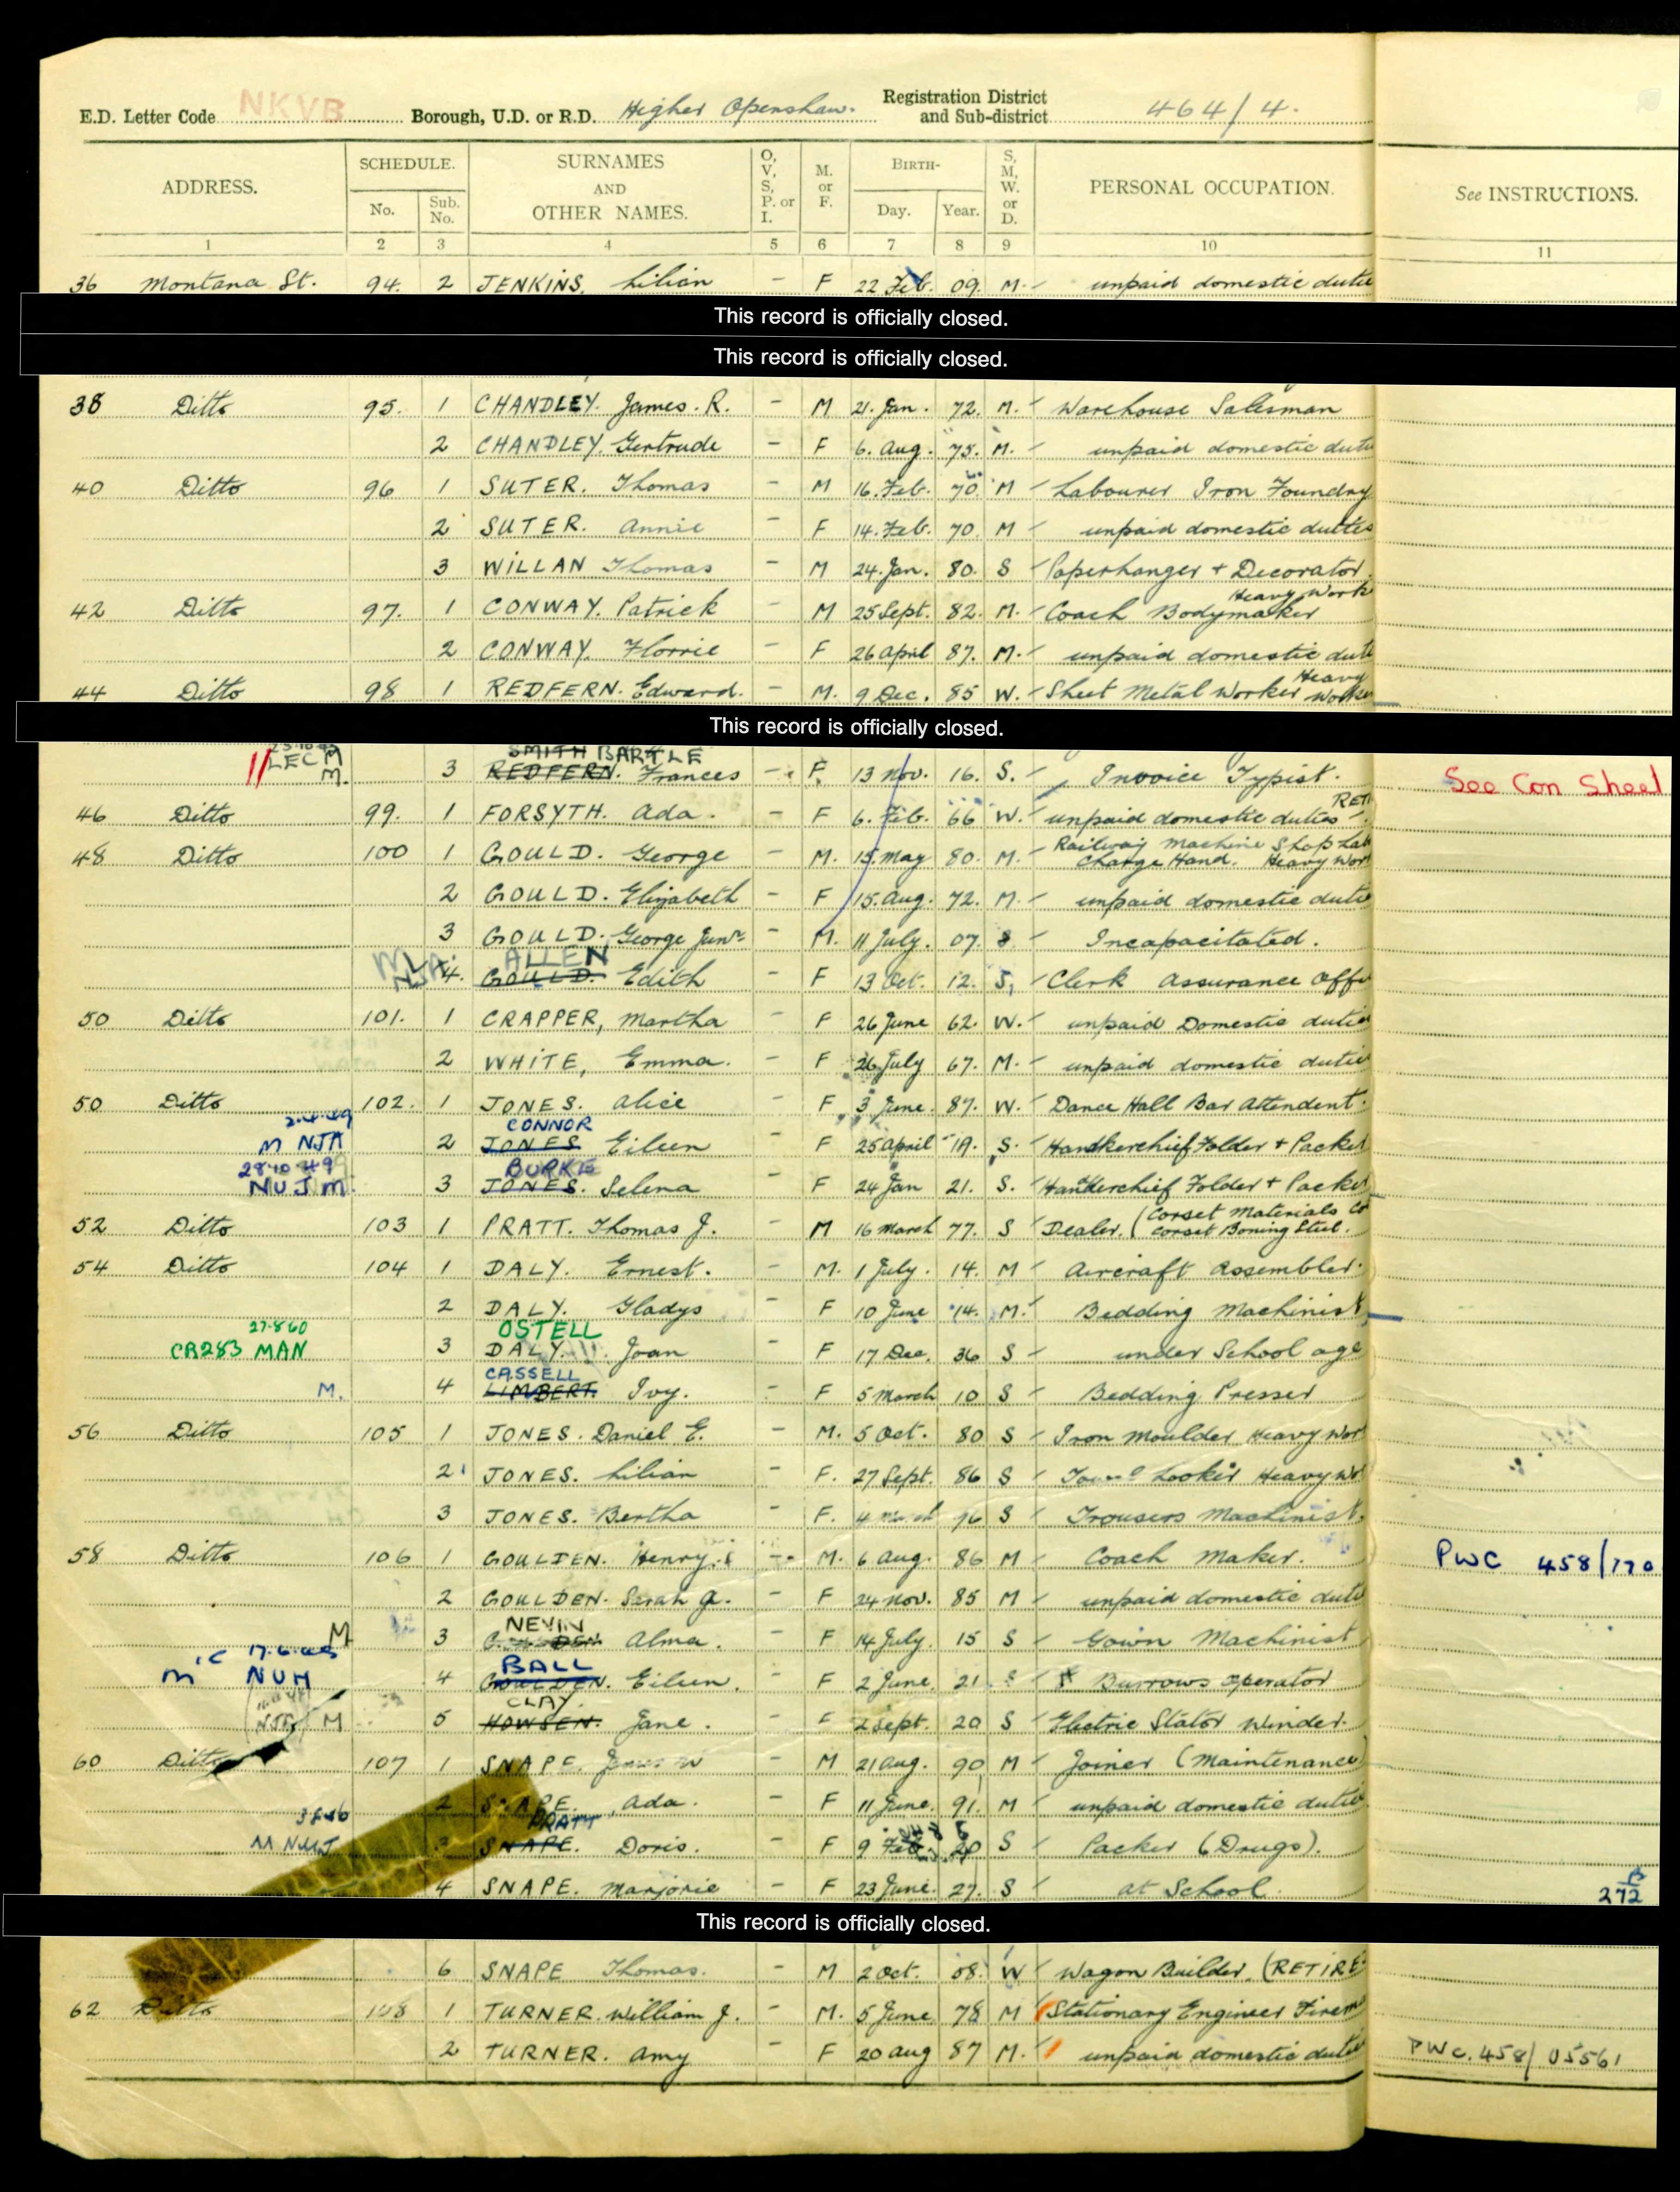 E.D. Letter Code NKVB Borough, U.D. or R.D. Higher Openshaw. Registration District and Sub-district 464/4.
ADDRESS. SCHEDULE. No. Sub. No. SURNAMES AND OTHER NAMES. O, V, S, P. or I. M. or F. BIRTH- Day. Year. S, M, W. or D. PERSONAL OCCUPATION. See INSTRUCTIONS.
1 2 3 4 5 6 7 8 9 10 11
36 Montana St. 94. 2 JENKINS. Lilian - F 22 Feb. 09. M. unpaid domestic dutie
This record is officially closed.
This record is officially closed.
38 Ditto 95. 1 CHANDLEY. James. R. - M 21. Jan. 72. M. Warehouse Salesman
2 CHANDLEY. Gertrude - F 6. Aug. 75. M. unpaid domestic dutie
40 Ditto 96 1 SUTER. Thomas - M 16. Feb. 70 M Labourer Iron Foundry
2 SUTER. Annie - F 14. Feb. 70 M unpaid domestic duties
3 WILLAN Thomas - M 24. Jan. 80. S Paperhanger + Decorator
Heavy Work
42 Ditto 97. 1 CONWAY. Patrick - M 25 Sept. 82. M. Coach Bodymaker
2 CONWAY. Florrie - F 26 April 87. M. unpaid domestic dutie
Heavy
44 Ditto 98 1 REDFERN. Edward. - M. 9 Dec. 85 W. Sheet Metal Worker Worker
This record is officially closed.
LEC M SMITH BARTLE
M. 3 REDFERN. Frances - F. 13 Nov. 16. S. Invoice Typist. See Con Sheet
RETI
46 Ditto 99. 1 FORSYTH. Ada. - F 6. Feb. 66 W. unpaid domestic duties
Railway Machine Shop Lab
48 Ditto 100 1 GOULD. George - M. 15. May 80. M. Charge Hand. Heavy Work
2 GOULD. Elizabeth - F 15. Aug. 72. M. unpaid domestic dutie
3 GOULD. George Junr - M. 11 July. 07. S. Incapacitated.
ALLEN
4. GOULD. Edith - F 13 Oct. 12. S, Clerk Assurance Offi
50 Ditto 101. 1 CRAPPER, Martha - F 26 June 62. W. unpaid Domestic dutie
2 WHITE, Emma. - F 26 July 67. M. unpaid domestic dutie
50 Ditto 102. 1 JONES. Alice F 3 June. 87. W. Dance Hall Bar Attendent.
2.4.49 CONNOR
M NJA 2 JONES Eileen F 25 April 19. S. Handkerchief Folder + Packer
28.10.49 BURKE
NUJ M. 3 JONES. Selena F 24 Jan 21. S. Handkerchief Folder + Packer
(Corset Materials Co
52 Ditto 103 1 PRATT. Thomas J. - M 16 March 77. S Dealer. Corset Boning Steel.
54 Ditto 104 1 DALY. Ernest. - M. 1 July. 14. M Aircraft Assembler.
2 DALY. Gladys - F 10 June 14. M. Bedding Machinist
27.8.60 OSTELL
CR283 MAN 3 DALY. Joan F 17 Dec. 36 S under School age
CASSELL
M. 4 LIMBERT. Ivy. F 5 March 10 S Bedding Presser
56 Ditto 105 1 JONES. Daniel E. - M. 5 Oct. 80 S Iron Moulder Heavy Wor
2 JONES. Lilian - F. 27 Sept. 86 S Looker Heavy Wo
3 JONES. Bertha - F. 4 March 96 S Trousers Machinist.
58 Ditto 106 1 GOULDEN. Henry. - M. 6 Aug. 86 M Coach Maker. PWC 458/170
2 GOULDEN. Sarah A. - F 24 Nov. 85 M unpaid domestic dutie
NEVIN
M 3 GOULDEN Alma. - F 14 July. 15 S Gown Machinist
17.6.45 BALL
M NUH 4 GOULDEN. Eileen. F 2 June. 21 S Burrows operator
CLAY.
NJA M 5 HOWSEN. Jane. - F 2 Sept. 20 S Electric Stator Winder.
60 Ditto 107 1 SNAPE. James W - M 21 Aug. 90 M Joiner (Maintenance)
2 SNAPE. Ada. - F 11 June. 91. M unpaid domestic dutie
PRATT
M NMJ 3 SNAPE. Doris. - F 9 Feb. 20 S Packer (Drugs).
4 SNAPE. Marjorie - F 23 June. 27. S at School 272
This record is officially closed.
6 SNAPE Thomas. - M 2 Oct. 08. W Wagon Builder. (RETIRE
62 Ditto 108 1 TURNER. William J. - M. 5 June 78 M Stationary Engineer Firema
2 TURNER. Amy - F 20 Aug 87 M. unpaid domestic dutie PWC. 458/05561